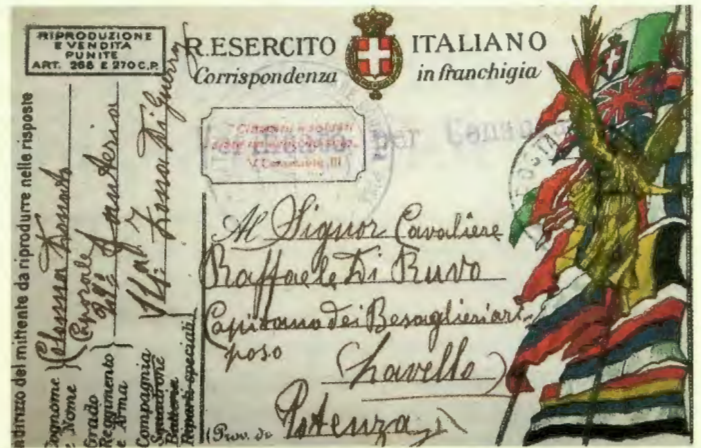 RIPRODUZIONE
E VENDITA
PUNITE
ART. 268 E 270 C.P.
R. ESERCITO ITALIANO
Corrispondenza in franchigia
Cittadini e soldati
V. Emanuele III
per Censura
POSTA
Al Signor Cavaliere
Raffaele Di Ruvo
Capitano dei Besaglieri a ri
poso
Lavello
(Prov. di Potenza)
ndirizzo del mittente da riprodurre nelle risposte
Cognome
e Nome
Donato
Grado
Caporale
Reggimento
e Arma
Fanteria
Compagnia
Squadrone
Batteria
Reparti speciali
Zona Di Guerra